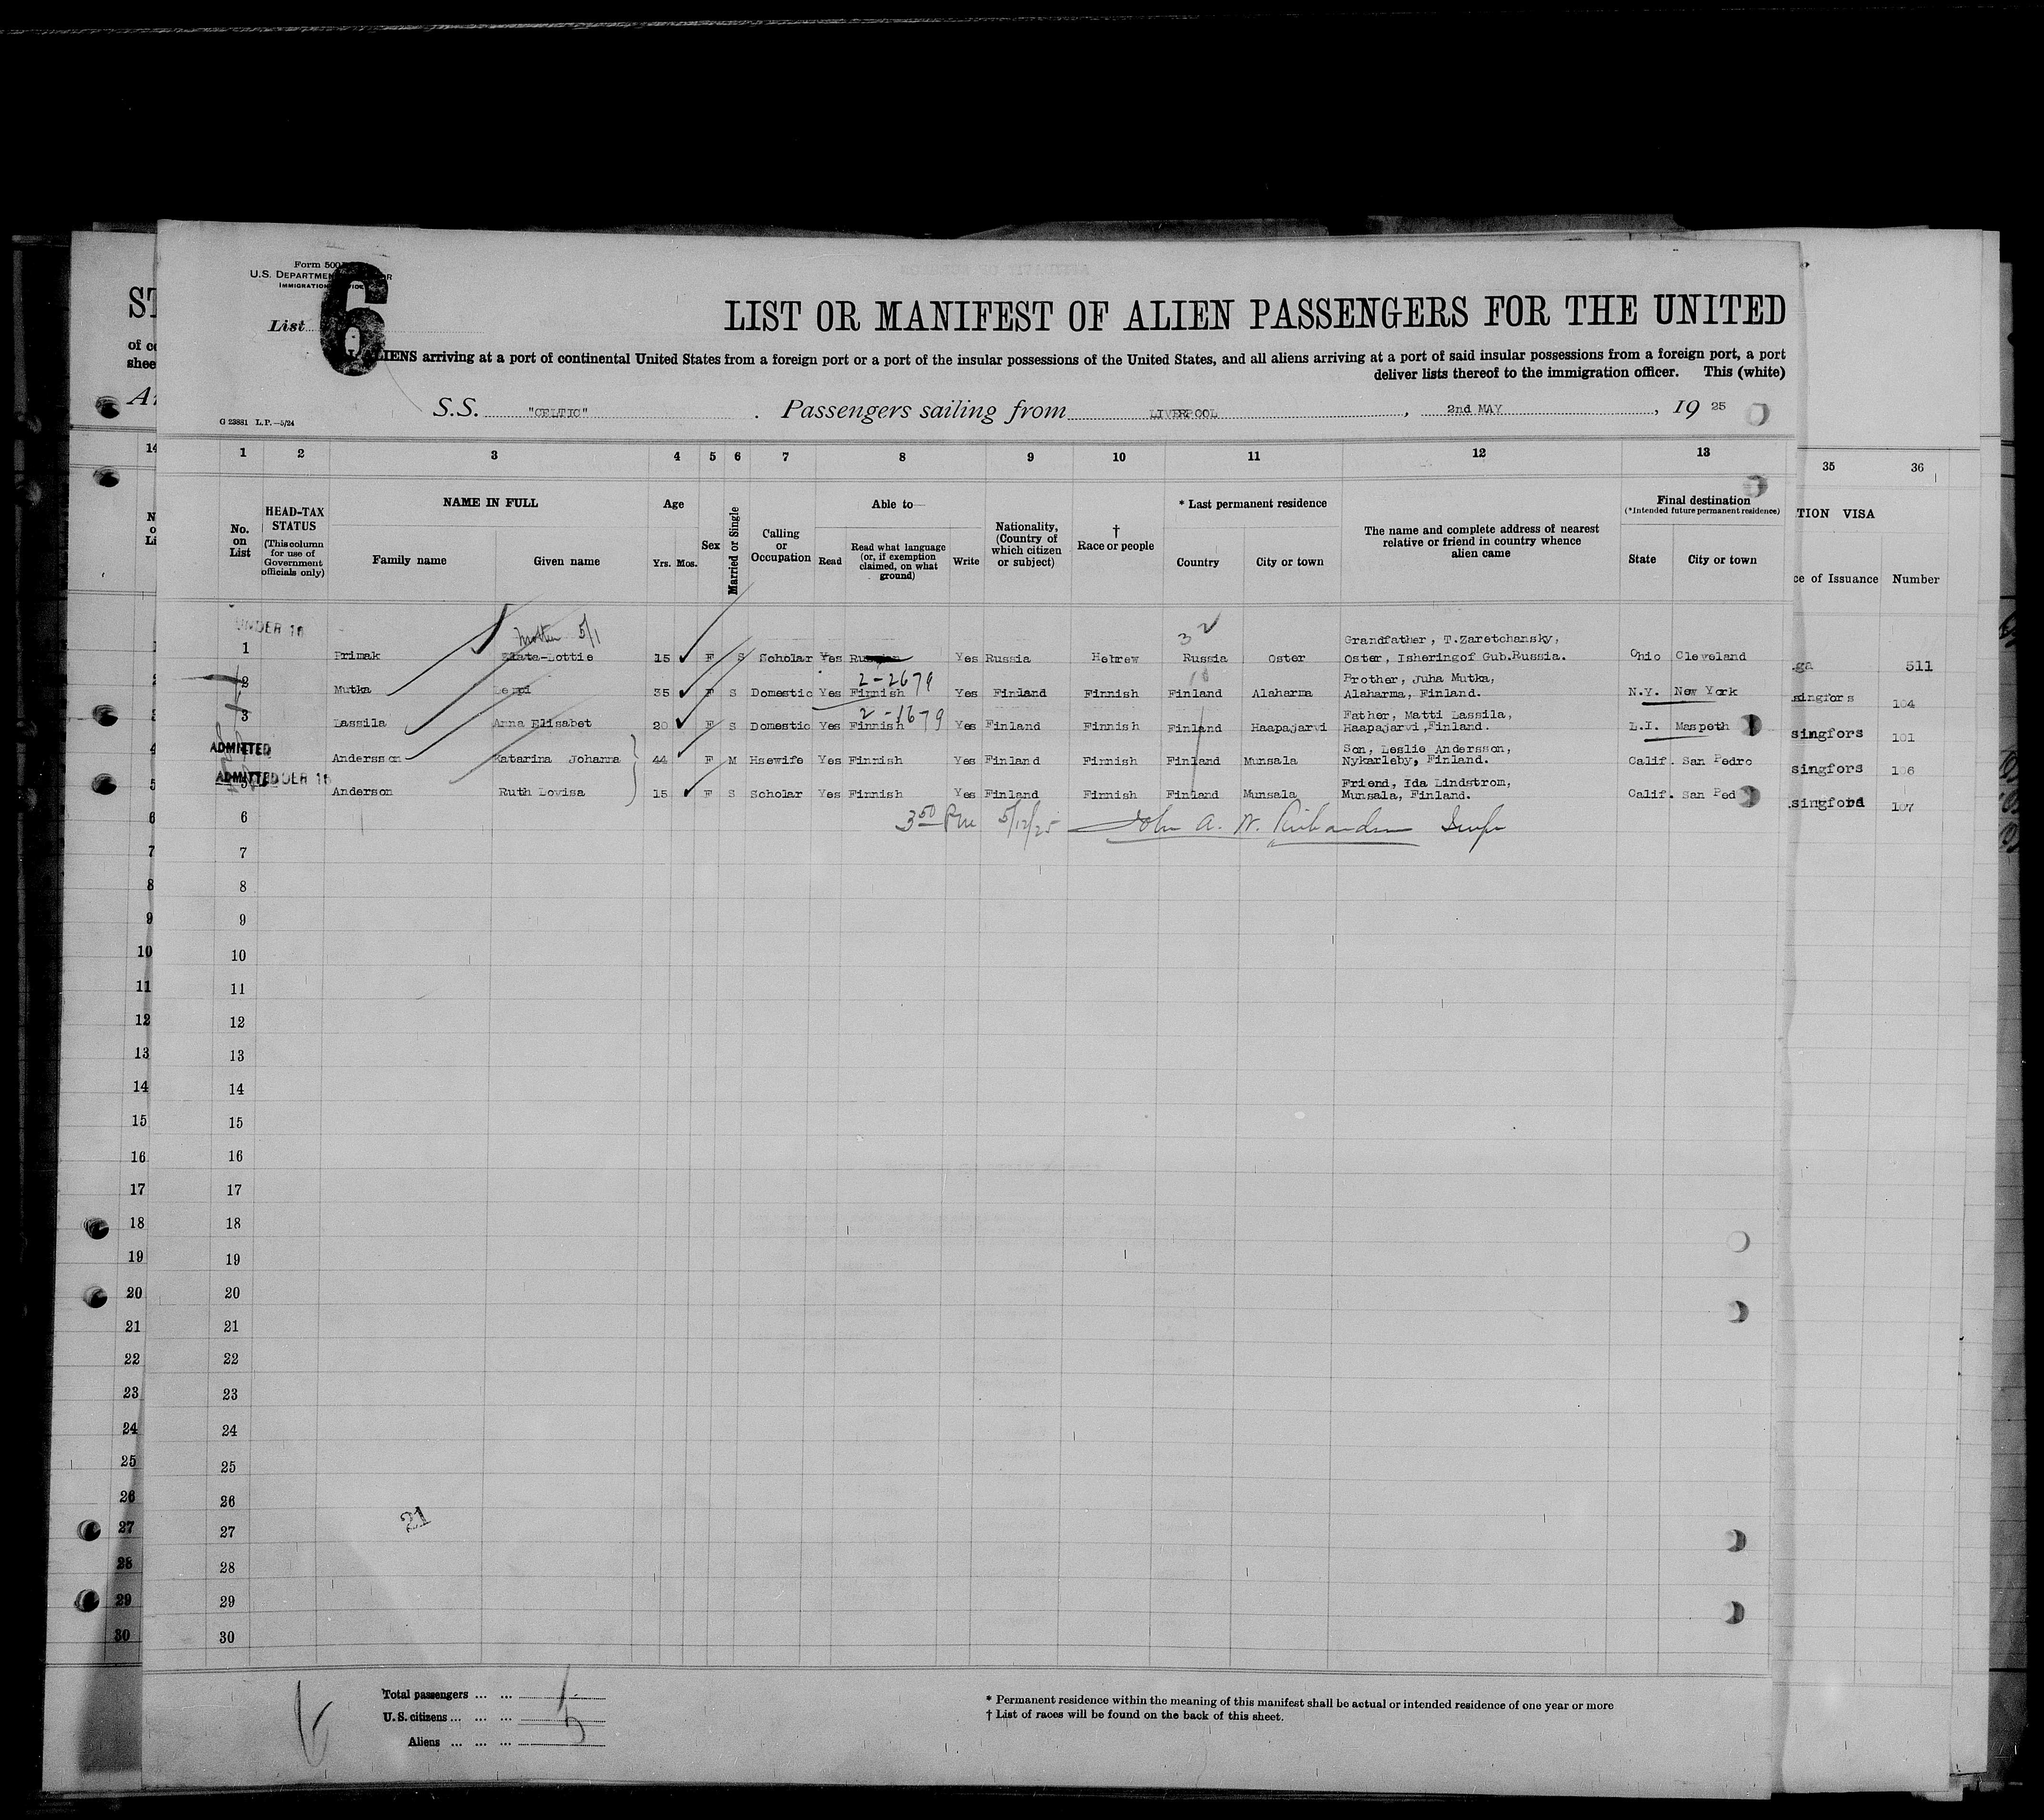 Form 500
U.S. DEPARTMENT
IMMIGRATION
List 6
LIST OR MANIFEST OF ALIEN PASSENGERS FOR THE UNITED
ALIENS arriving at a port of continental United States from a foreign port or a port of the insular possessions of the United States, and all aliens arriving at a port of said insular possessions from a foreign port, a port
deliver lists thereof to the immigration officer. This (white)
S.S. "CELTIC". Passengers sailing from LIVERPOOL, 2nd MAY, 1925
G 23881 L.P.—5/24
1 2 3 4 5 6 7 8 9 10 11 12 13 35 36
No. on List
HEAD-TAX STATUS
(This column for use of Government officials only)
NAME IN FULL
Family name Given name
Age
Yrs. Mos.
Sex
Married or Single
Calling or Occupation
Able to—
Read
Read what language (or, if exemption claimed, on what ground)
Write
Nationality, (Country of which citizen or subject)
† Race or people
* Last permanent residence
Country City or town
The name and complete address of nearest relative or friend in country whence alien came
Final destination
(*Intended future permanent residence)
State City or town
TION VISA
ce of Issuance Number
UNDER 16
Mother 5/1
32
Grandfather, T.Zaretchansky,
1 Primak Zlata-Lottie 15 F S Scholar Yes Russian Yes Russia Hebrew Russia Oster Oster, Isheringof Gub.Russia. Ohio Cleveland ga 511
2-2679
Brother, Juha Mutka,
2 Mutka Lempi 35 F S Domestic Yes Finnish Yes Finland Finnish Finland Alaharma Alaharma, Finland. N.Y. New York singfors 104
2-1679
Father, Matti Lassila,
3 Lassila Anna Elisabet 20 F S Domestic Yes Finnish Yes Finland Finnish Finland Haapajarvi Haapajarvi,Finland. L.I. Maspeth singfors 101
ADMITTED
Son, Leslie Andersson,
4 Andersson Katarina Johanna 44 F M Hsewife Yes Finnish Yes Finland Finnish Finland Munsala Nykarleby, Finland. Calif. San Pedro singfors 106
ADMITTED UNDER 16
Friend, Ida Lindstrom,
5 Anderson Ruth Lovisa 15 F S Scholar Yes Finnish Yes Finland Finnish Finland Munsala Munsala, Finland. Calif. San Ped singford 107
6 3 50 Pm 5/12/25 John A. W. Richardson Insp
7
8
9
10
11
12
13
14
15
16
17
18
19
20
21
22
23
24
25
26
21
27
28
29
30
Total passengers ... ...
U.S. citizens ... ... ... 5
Aliens ... ... ...
* Permanent residence within the meaning of this manifest shall be actual or intended residence of one year or more
† List of races will be found on the back of this sheet.